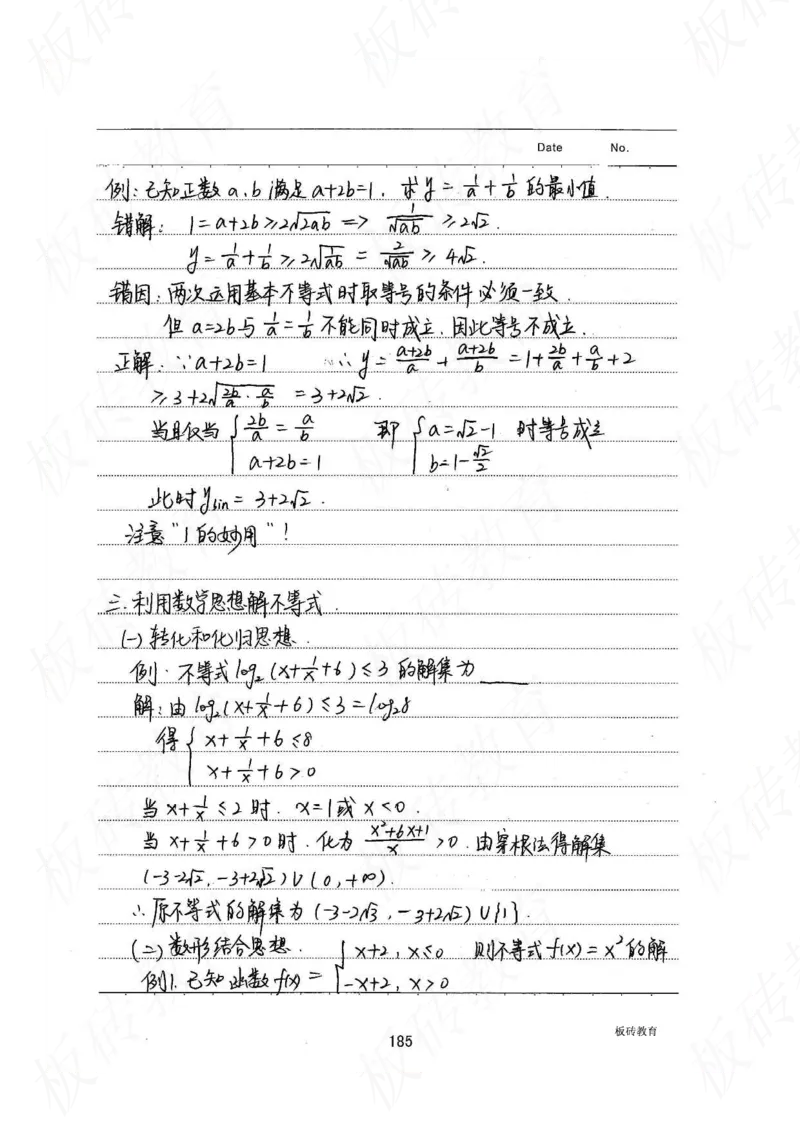 Date No.
例:已知正数a、b满足a+2b=1,求y=1/a+1/b的最小值.
错解: 1=a+2b≥2√2ab => 1/√ab ≥2√2.
y=1/a+1/b≥2√1/ab = 2/√ab ≥ 4√2.
错因:两次运用基本不等式时取等号的条件必须一致.
但a=2b与1/a=1/b不能同时成立,因此等号不成立.
正解:∵a+2b=1 ∴y=(a+2b)/a+(a+2b)/b=1+2b/a+a/b+2
≥3+2√(2b/a·a/b) =3+2√2.
当且仅当{2b/a=a/b 即{a=√2-1 时等号成立
a+2b=1 b=1-√2/2
此时ymin=3+2√2.
注意"1的妙用"!
三.利用数学思想解不等式.
(一)转化和化归思想.
例.不等式log₂(x+1/x+6)≤3的解集为____
解:由log₂(x+1/x+6)≤3=log₂8
得{x+1/x+6≤8
x+1/x+6>0
当x+1/x≤2时.x=1或x<0.
当x+1/x+6>0时.化为(x²+6x+1)/x>0.由穿根法得解集
(-3-2√2,-3+2√2)∪(0,+∞).
∴原不等式的解集为(-3-2√3,-3+2√2)∪{1}.
(二)数形结合思想. {x+2,x≤0 则不等式f(x)=x²的解
例1.已知函数f(x)= -x+2,x>0
185
板砖教育